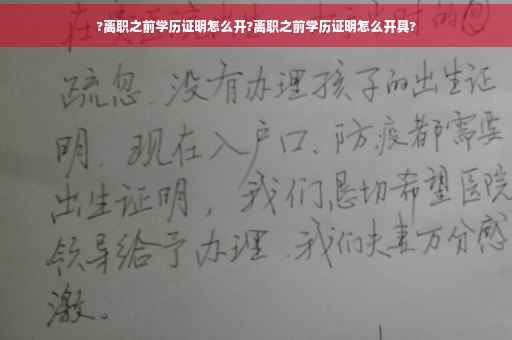 ?离职之前学历证明怎么开?离职之前学历证明怎么开具?
疏忽、没有办理孩子的出生证
明、现在入户口、防疫都需要
出生证明，我们恳切希望医院
领导给予办理、我们夫妻万分感
激。